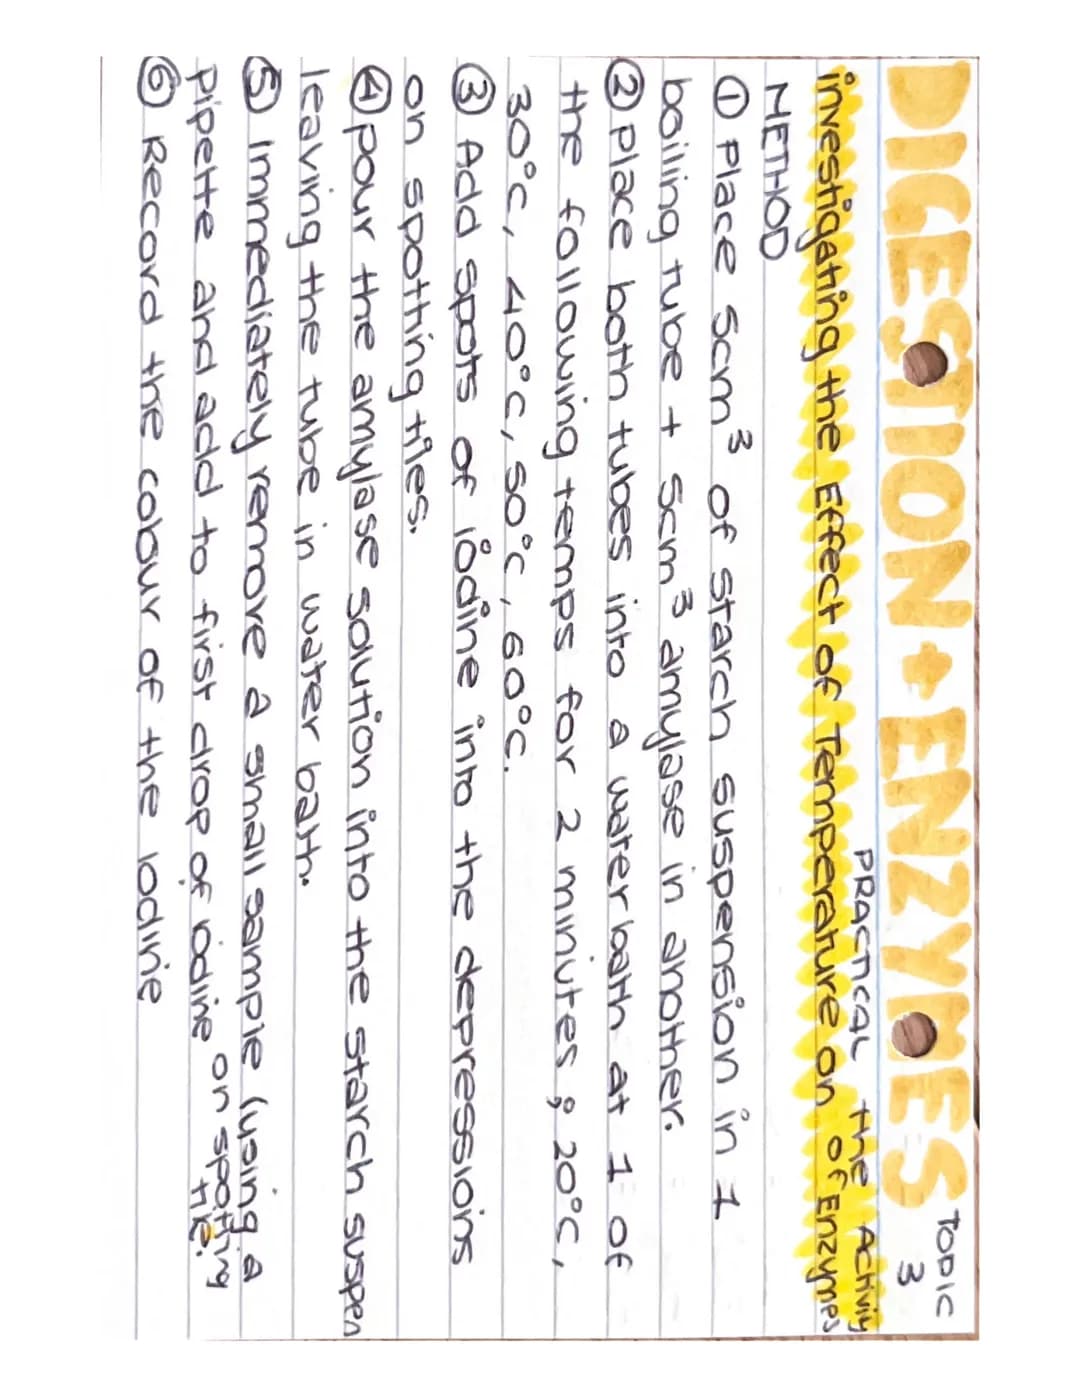 DIGESTION + ENZYMES TOPIC 3
PRACTICAL
investigating the Effect of Temperature on the Activiy of Enzymes
METHOD
① Place 5cm³ of starch suspension in 1
boiling tube + 5cm³ amylase in another.
② Place both tubes into a water bath at 1 of
the following temps for 2 minutes; 20°C,
30°C, 40°C, 50°C, 60°C.
③ Add spots of iodine into the depressions
on spotting tiles.
④ pour the amylase solution into the starch suspen
leaving the tube in water bath.
⑤ Immediately remove a small sample (using a
Pipette and add to first drop of iodine on spotting tile.
⑥ Record the colour of the iodine